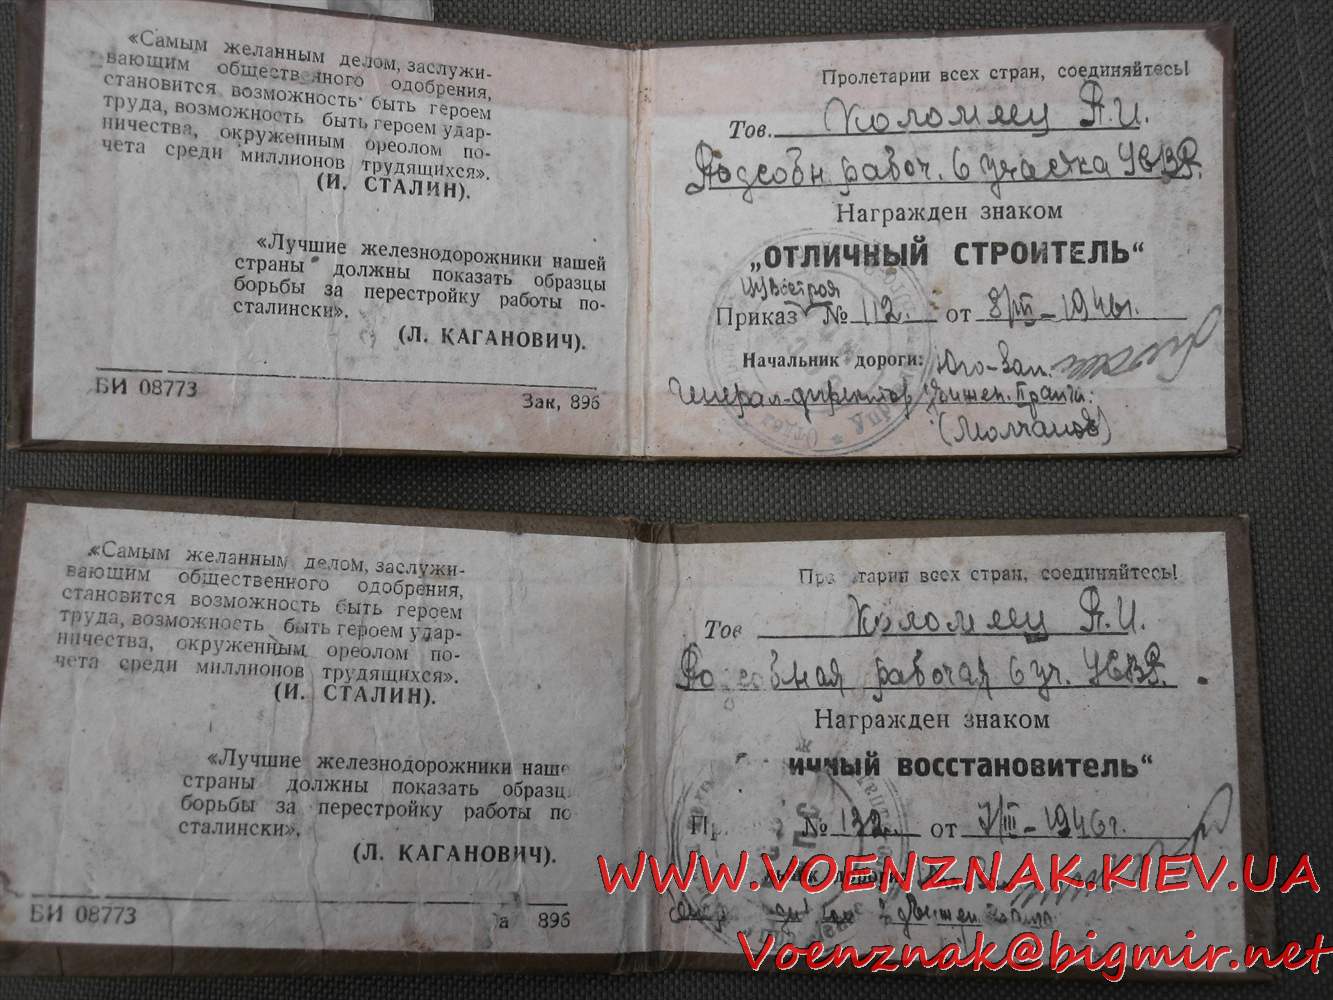 «Самым желанным делом, заслужи-
вающим общественного одобрения,
становится возможность быть героем
труда, возможность быть героем удар-
ничества, окруженным ореолом по-
чета среди миллионов трудящихся».
(И. СТАЛИН).
«Лучшие железнодорожники нашей
страны должны показать образцы
борьбы за перестройку работы по-
сталински».
(Л. КАГАНОВИЧ).
БИ 08773
Зак, 896
Пролетарии всех стран, соединяйтесь!
Тов. Коломиец А.И.
Подсобн. рабоч. 6 участка
Награждён знаком
„ОТЛИЧНЫЙ СТРОИТЕЛЬ“
Приказ № 112. от 8/III-1946г.
Начальник дороги: Юго-Зап.
Генерал-директор движен. I ранга
(Молчанов)
«Самым желанным делом, заслужи-
вающим общественного одобрения,
становится возможность быть героем
труда, возможность быть героем удар-
ничества, окруженным ореолом по-
чета среди миллионов трудящихся».
(И. СТАЛИН).
«Лучшие железнодорожники наше
страны должны показать образц
борьбы за перестройку работы по
сталински».
(Л. КАГАНОВИЧ).
БИ 08773
896
Пролетарии всех стран, соединяйтесь!
Тов Коломиец А.И.
Подсобная рабочая 6 уч.
Награжден знаком
ичный восстановитель“
№ 132. от 7/III-1946г.
WWW.VOENZNAK.KIEV.UA
Voenznak@bigmir.net